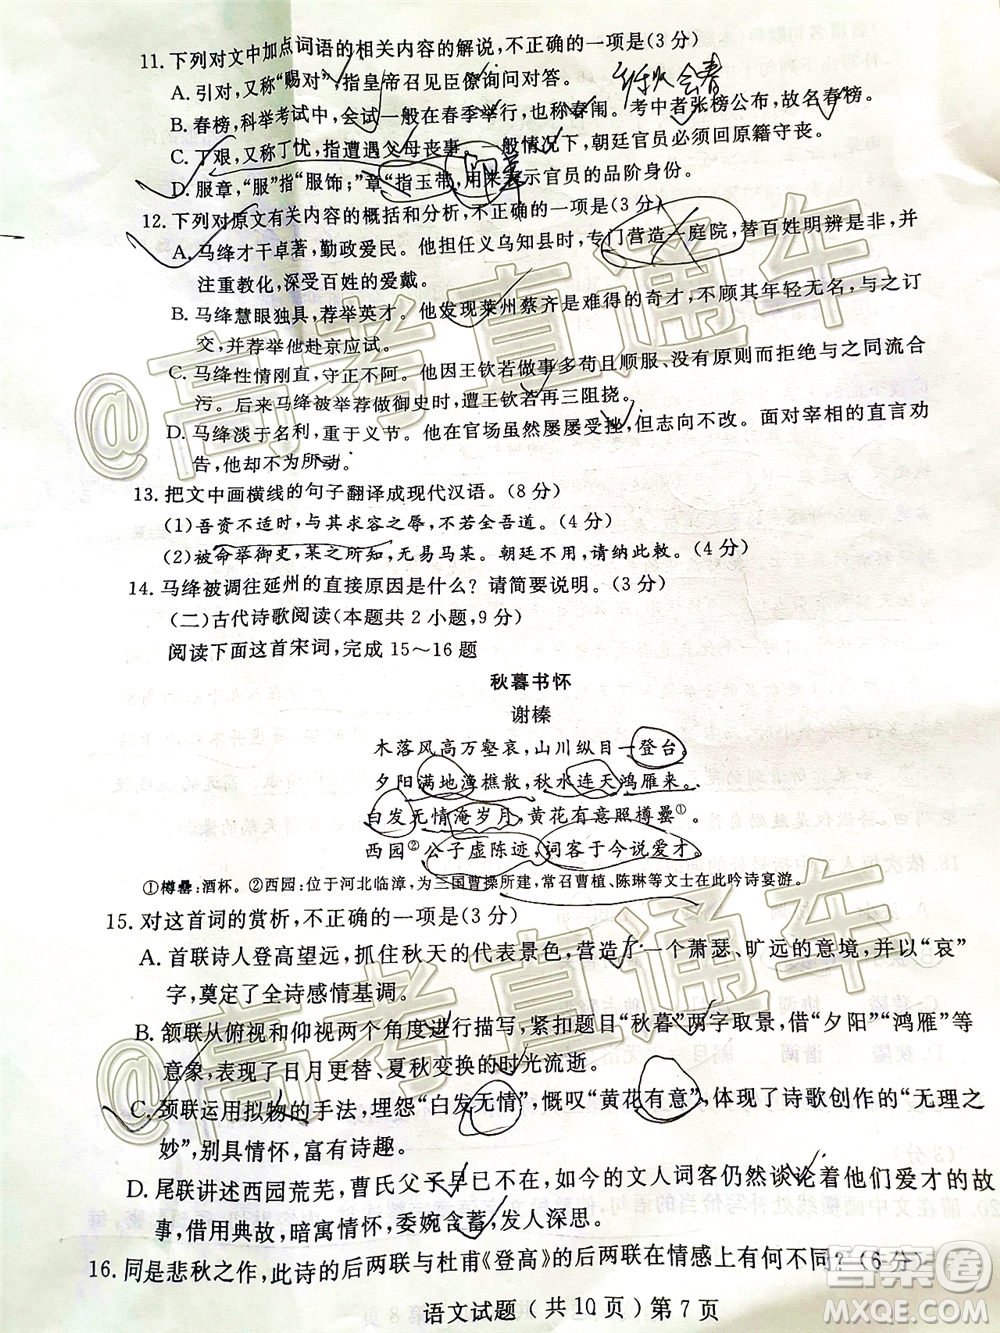 11. 下列对文中加点词语的相关内容的解说，不正确的一项是(3 分)
A. 引对，又称“赐对”，指皇帝召见臣僚询问对答。
B. 春榜，科举考试中，会试一般在春季举行，也称春闱。考中者张榜公布，故名春榜。
C. 丁艰，又称丁忧，指遭遇父母丧事。一般情况下，朝廷官员必须回原籍守丧。
D. 服章，“服”指“服饰；”章“指玉带，用来表示官员的品阶身份。
12. 下列对原文有关内容的概括和分析，不正确的一项是(3 分)
A. 马绛才干卓著，勤政爱民。他担任义乌知县时，专门营造一庭院，替百姓明辨是非，并
注重教化，深受百姓的爱戴。
B. 马绛慧眼独具，荐举英才。他发现莱州蔡齐是难得的奇才，不顾其年轻无名，与之订
交，并荐举他赴京应试。
C. 马绛性情刚直，守正不阿。他因王钦若做事多苟且顺服、没有原则而拒绝与之同流合
污。后来马绛被举荐做御史时，遭王钦若再三阻挠。
D. 马绛淡于名利，重于义节。他在官场虽然屡屡受挫，但志向不改。面对宰相的直言劝
告，他却不为所动。
13. 把文中画横线的句子翻译成现代汉语。(8 分)
(1)吾资不适时，与其求容之辱，不若全吾道。(4 分)
(2)被命举御史，某之所知，无易马某。朝廷不用，请纳此敕。(4 分)
14. 马绛被调往延州的直接原因是什么？请简要说明。(3 分)
(二)古代诗歌阅读(本题共 2 小题，9 分)
阅读下面这首宋词，完成 15～16 题
秋暮书怀
谢榛
木落风高万壑哀，山川纵目一登台。
夕阳满地渔樵散，秋水连天鸿雁来。
白发无情淹岁月，黄花有意照樽罍①。
西园②公子虚陈迹，词客于今说爱才。
①樽罍：酒杯。②西园：位于河北临漳，为三国曹操所建，常召曹植、陈琳等文士在此吟诗宴游。
15. 对这首词的赏析，不正确的一项是(3 分)
A. 首联诗人登高望远，抓住秋天的代表景色，营造了一个萧瑟、旷远的意境，并以“哀”
字，奠定了全诗感情基调。
B. 颔联从俯视和仰视两个角度进行描写，紧扣题目“秋暮”两字取景，借“夕阳”“鸿雁”等
意象，表达了日月更替、夏秋变换的时光流逝。
C. 颈联运用拟物的手法，埋怨“白发无情”，慨叹“黄花有意”，体现了诗歌创作的“无理之
妙”，别具情怀，富有诗趣。
D. 尾联讲述西园荒芜，曹氏父子早已不在，如今的文人词客仍然谈论着他们爱才的故
事，借用典故，暗寓情怀，委婉含蓄，发人深思。
16. 同是悲秋之作，此诗的后两联与杜甫《登高》的后两联在情感上有何不同？(6 分)
语文试题（共 10 页）第 7 页
@高考直通车
@高考直通车
答案圈
MXQE.COM